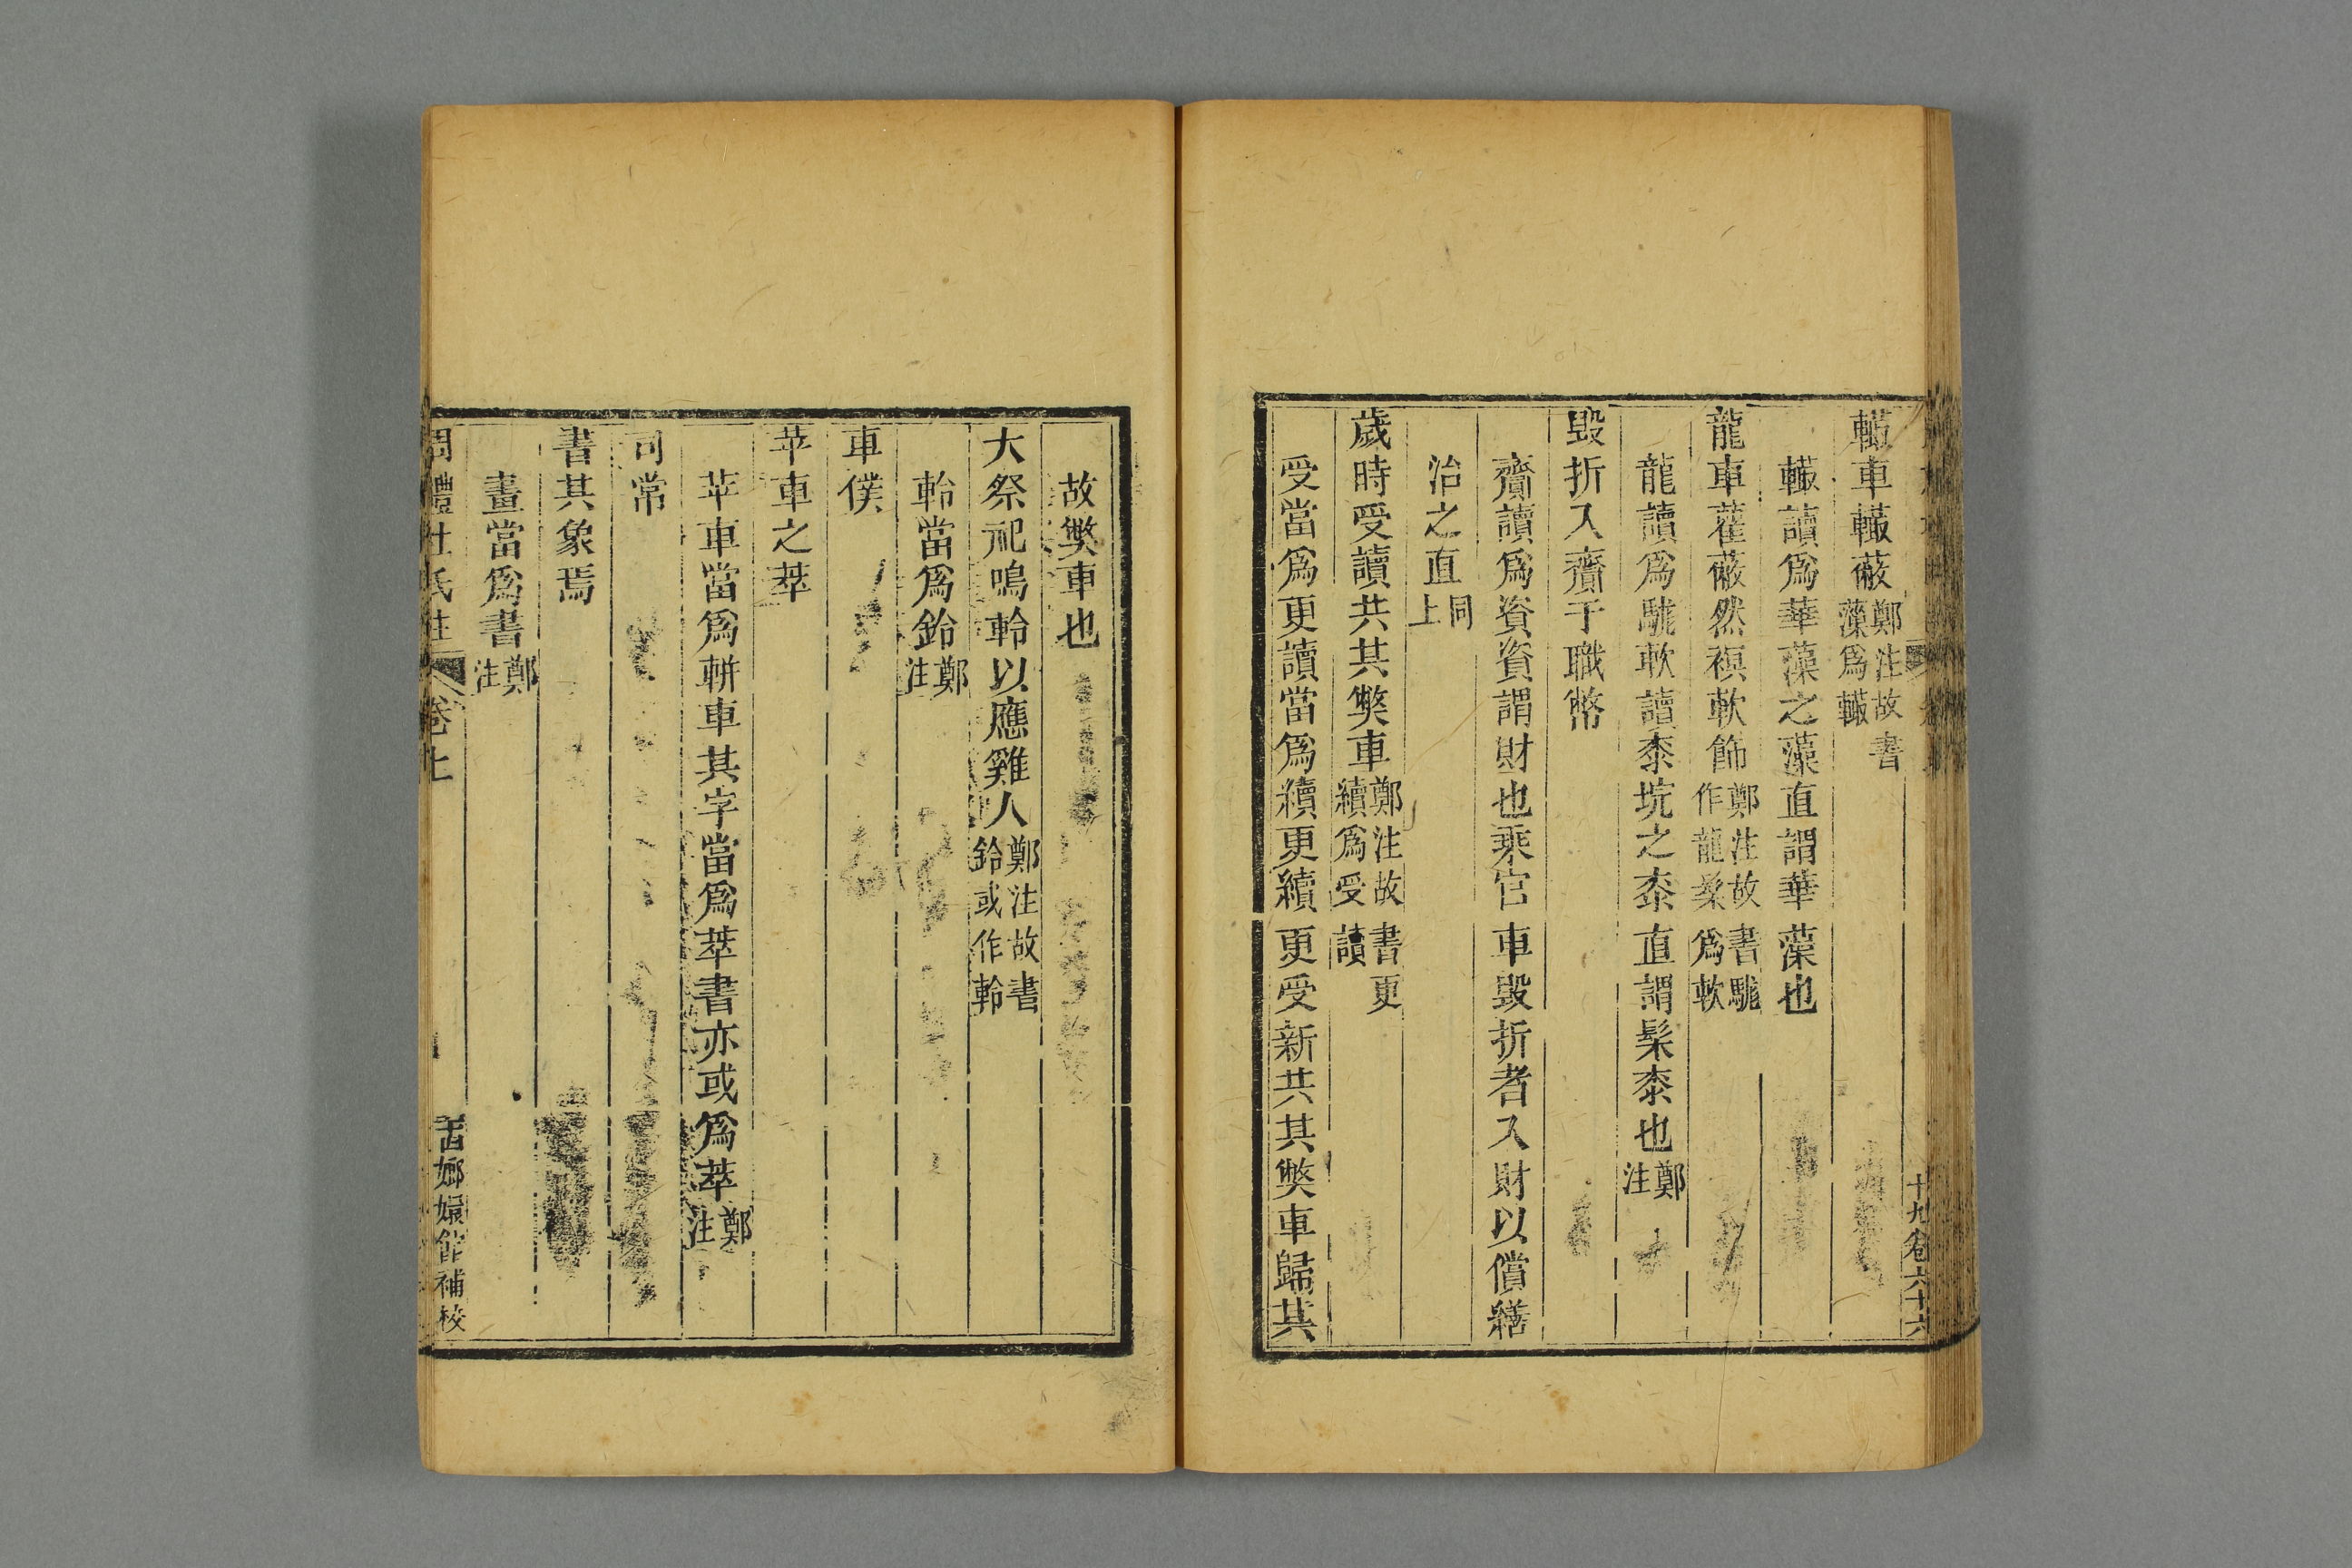 轏車轏蔽鄭注故書藻爲轏
轏讀爲華藻之藻直謂華藻也
龍車雚蔽然䙰軟飾鄭注故書駹作龍髤爲軟
龍讀爲駹軟讀桼垸之桼直謂髤桼也鄭注
毀折入齎于職幣
齎讀爲資資謂財也乘官車毀折者入財以償繕
治之直同上
歲時受讀共其獘車鄭注故書更續爲受讀
受當爲更讀當爲續更續更受新共其獘車歸其
十九卷六十六
故獘車也
大祭祀鳴軨以應雞人鄭注故書鈴或作軨
軨當爲鈴鄭注
車僕
苹車之萃
苹車當爲軿車其字當爲萃書亦或爲萃鄭注
司常
書其象焉
畫當爲書鄭注
周禮杜氏注 卷上
嫏嬛館補校